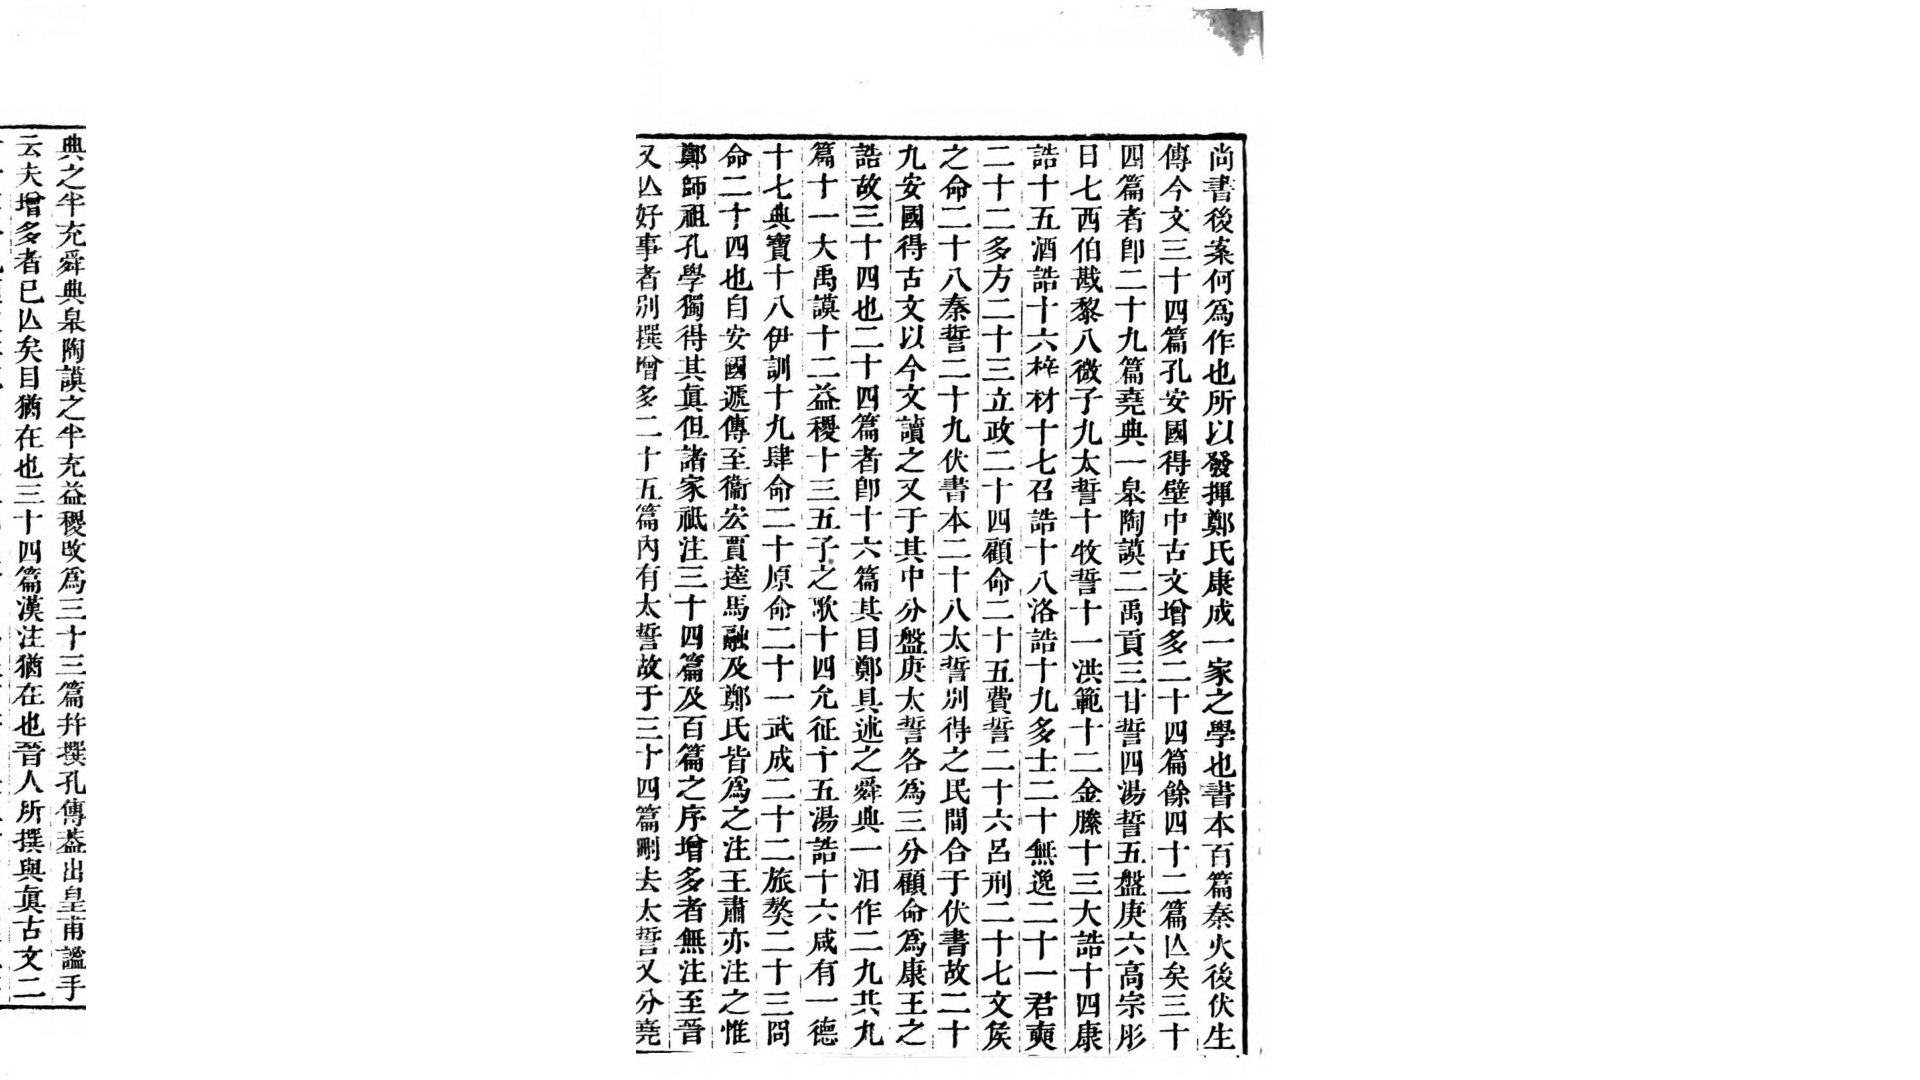 尚書後案何爲作也所以發揮鄭氏康成一家之學也書本百篇秦火後伏生
傳今文三十四篇孔安國得壁中古文增多二十四篇餘四十二篇亾矣三十
四篇者卽二十九篇堯典一皋陶謨二禹貢三甘誓四湯誓五盤庚六高宗肜
日七西伯戡黎八微子九太誓十牧誓十一洪範十二金縢十三大誥十四康
誥十五酒誥十六梓材十七召誥十八洛誥十九多士二十無逸二十一君奭
二十二多方二十三立政二十四顧命二十五費誓二十六呂刑二十七文侯
之命二十八秦誓二十九伏書本二十八太誓別得之民間合于伏書故二十
九安國得古文以今文讀之又于其中分盤庚太誓各爲三分顧命爲康王之
誥故三十四也二十四篇者卽十六篇其目鄭具述之舜典一汨作二九共九
篇十一大禹謨十二益稷十三五子之歌十四允征十五湯誥十六咸有一德
十七典寶十八伊訓十九肆命二十原命二十一武成二十二旅獒二十三冏
命二十四也自安國遞傳至衞宏賈逵馬融及鄭氏皆爲之注王肅亦注之惟
鄭師祖孔學獨得其眞但諸家祇注三十四篇及百篇之序增多者無注至晉
又亾好事者別撰增多二十五篇內有太誓故于三十四篇刪去太誓又分堯
典之半充舜典皋陶謨之半充益稷改爲三十三篇幷撰孔傳葢出皇甫謐手
云夫增多者已亾矣目猶在也三十四篇漢注猶在也晉人所撰與眞古文二